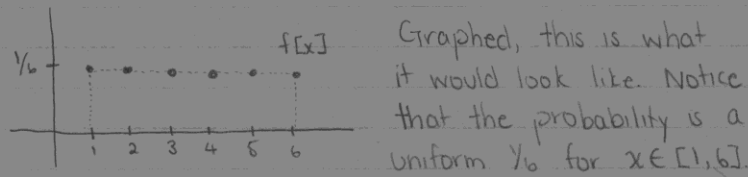 f[x]
1/6
1 2 3 4 5 6
Graphed, this is what
it would look like. Notice
that the probability is a
uniform 1/6 for x ∈ [1,6].